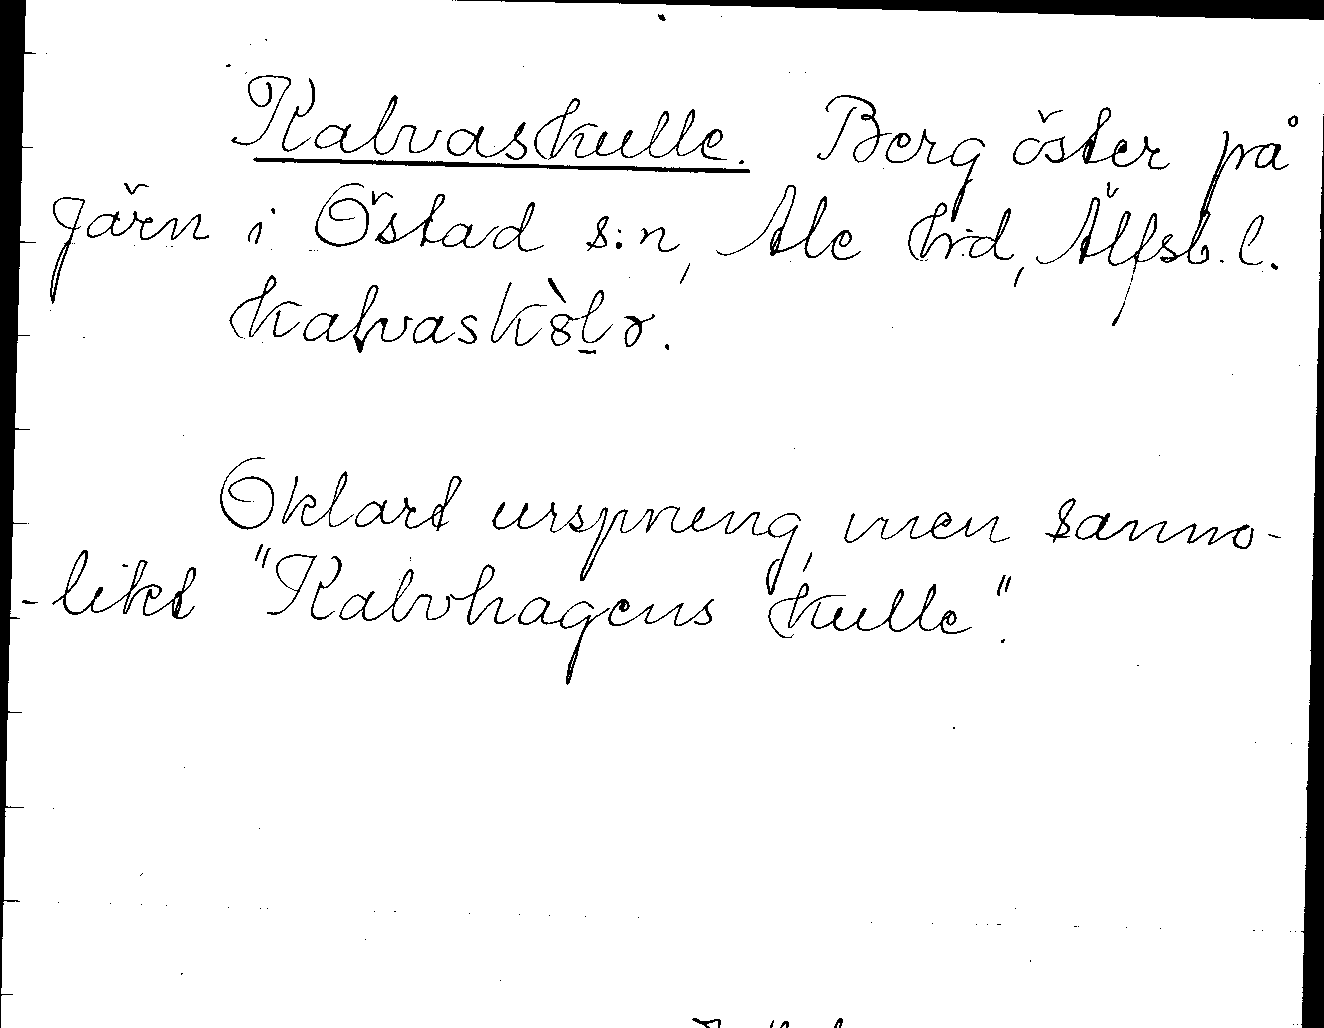 Kalvaskulle. Berg öster på
Järn i Östad s:n, Ale hrd, Älfsb. l.
kalvaskòlɔ.
Oklart ursprung, men sanno-
-likt "Kalvhagens kulle".